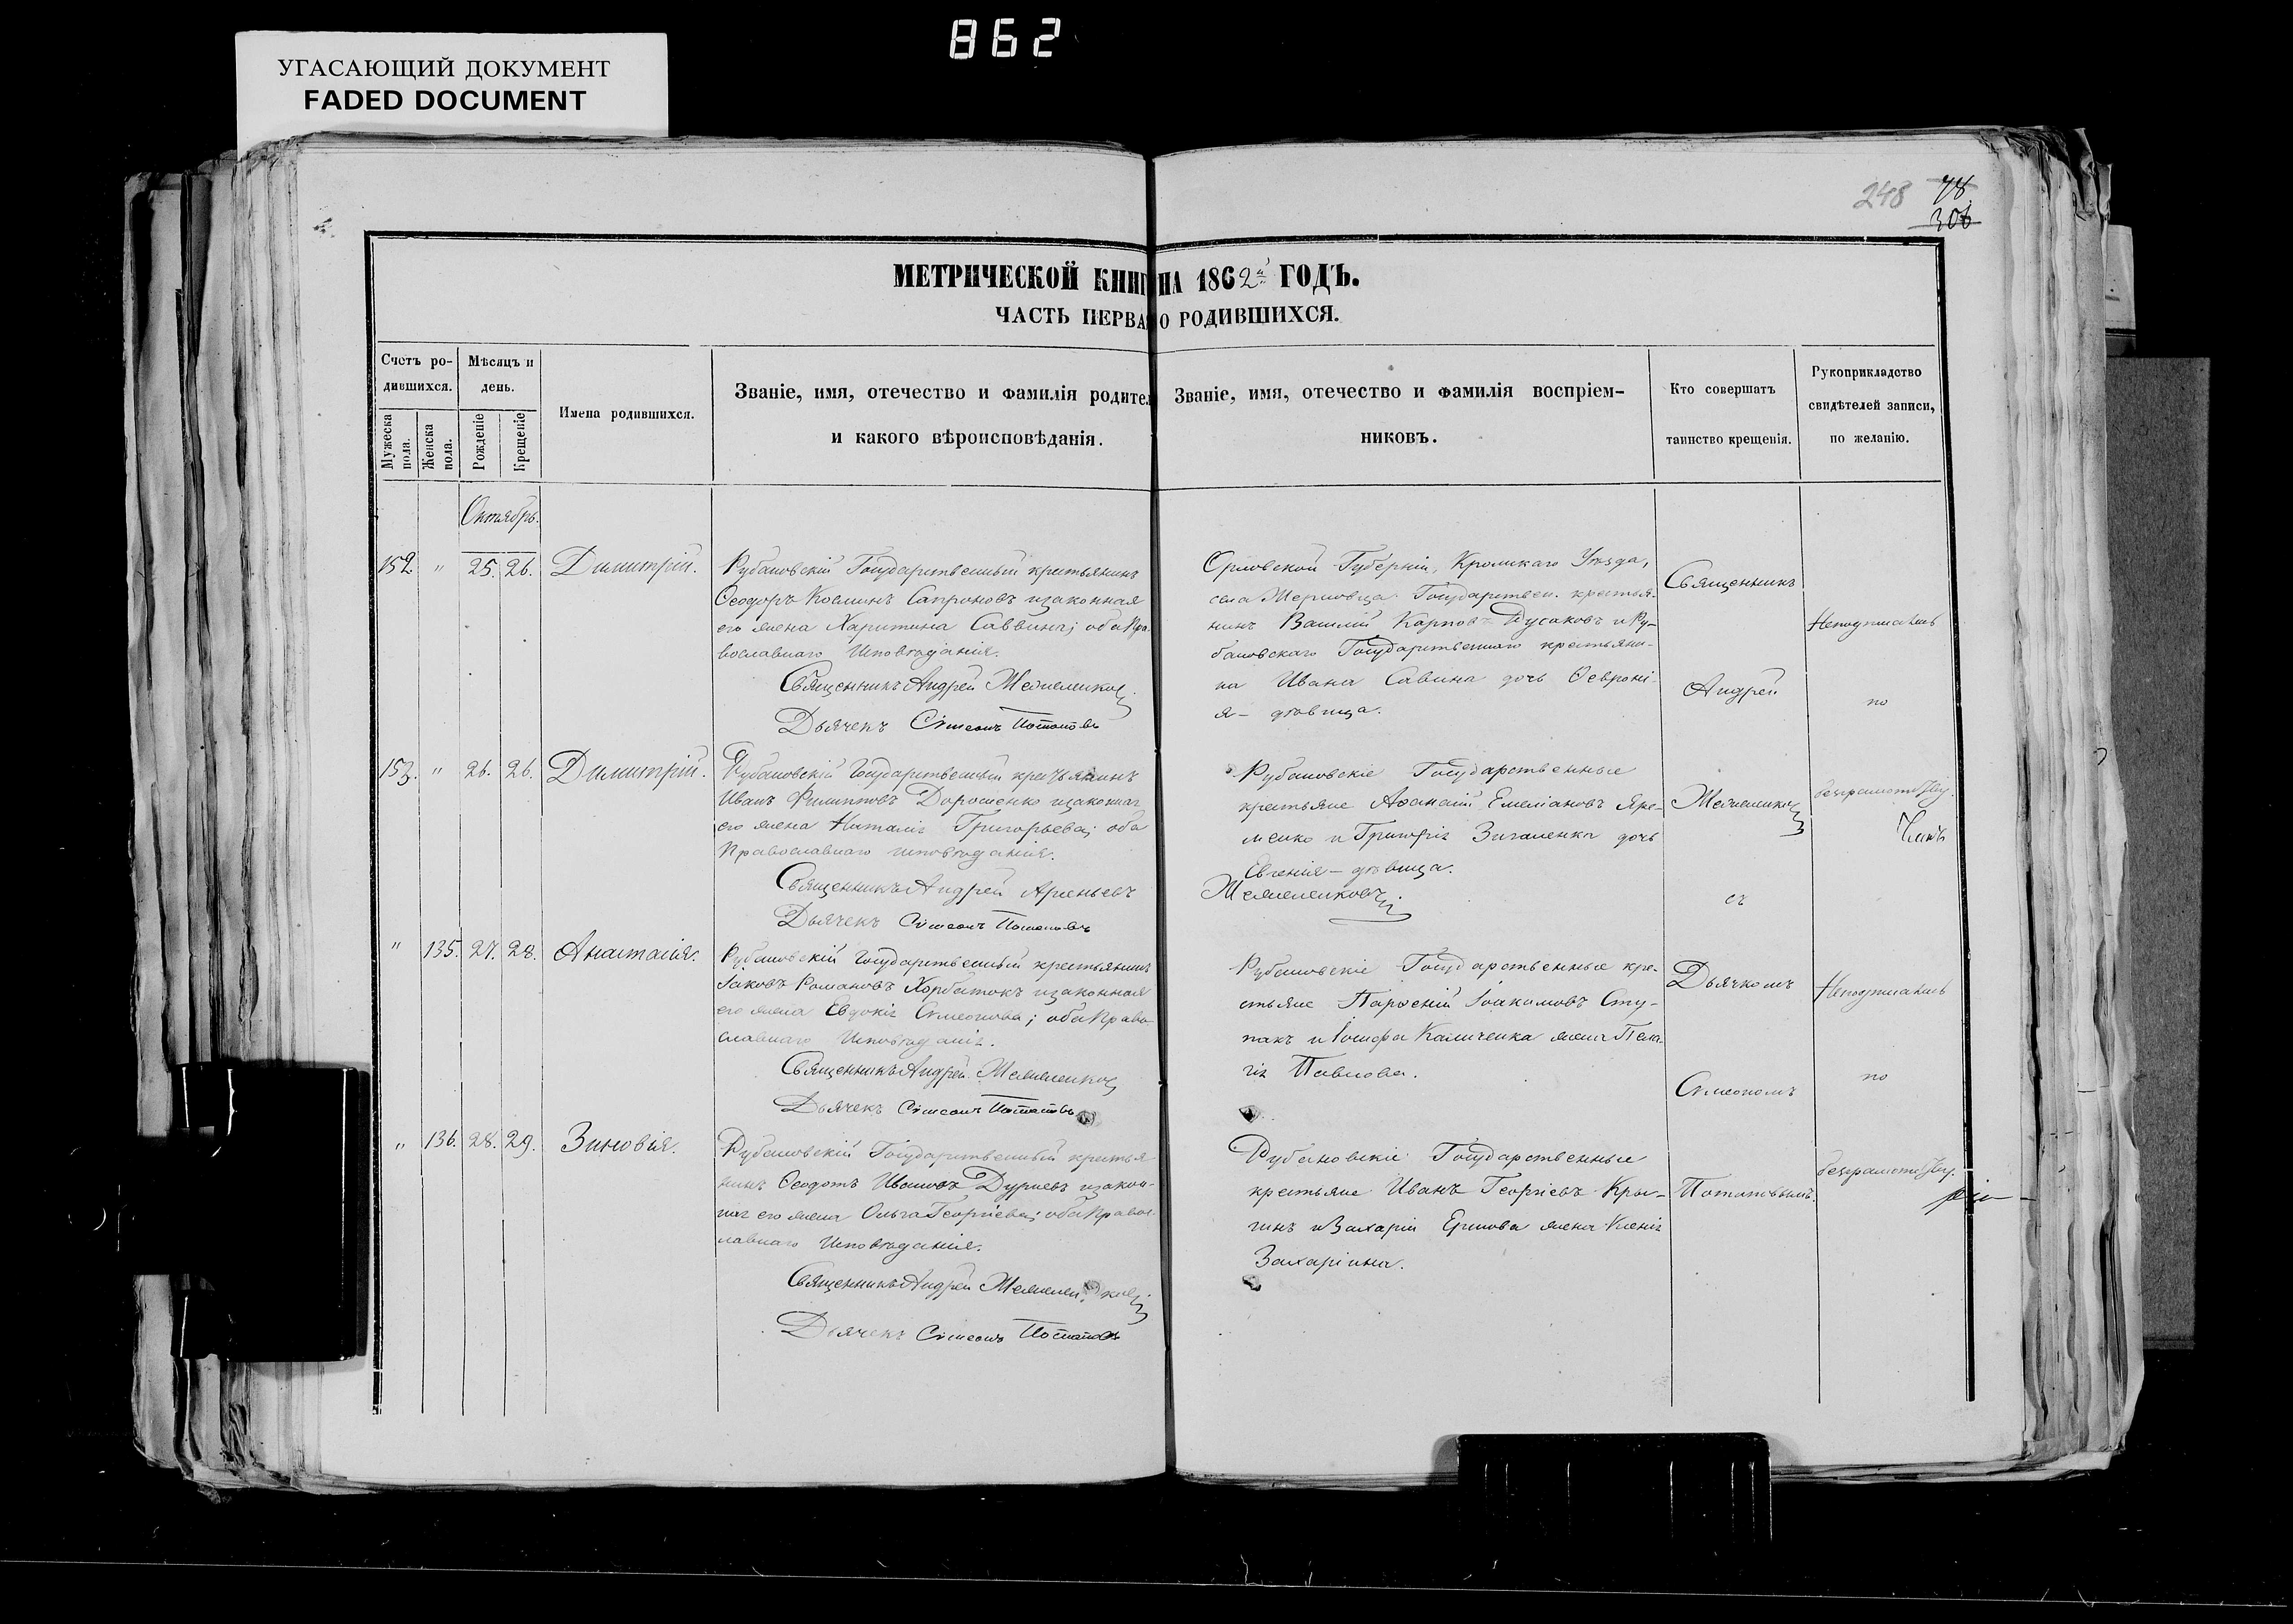 862
УГАСАЮЩИЙ ДОКУМЕНТ
FADED DOCUMENT
248 78
306
МЕТРИЧЕСКОЙ КНИГ НА 1862й ГОДЪ.
ЧАСТЬ ПЕРВА О РОДИВШИХСЯ.
Счетъ ро-
дившихся.
Мужеска пола.
Женска пола.
Мѣсяцъ и
день.
Рожденіе
Крещеніе
Имена родившихся.
Званіе, имя, отечество и фамилія родител
и какого вѣроисповѣданія.
Званіе, имя, отечество и фамилія воспріем-
никовъ.
Кто совершатъ
таинство крещенія.
Рукоприкладство
свидѣтелей записи,
по желанію.
Октябрь.
152. " 25. 26. Димитрій.
Рубановскій Государственный крестьянинъ
Ѳеодоръ Косминъ Сапроновъ изаконная
его жена Харитина Саввина; оба Пра-
вославнаго Исповѣданія.
Священникъ Андрей
Дьячекъ Сѵмеонъ Потатовъ
Орловской Губерніи, Уѣзда,
села Государствен. крестья-
нинъ Василій Карповъ и Ру-
бановскаго Государственнаго крестьяни-
на Ивана Савина дочь Ѳевроні-
я - дѣвица.
Священникъ
Андрей
Неподписались
по
153. " 26. 26. Димитрій.
Рубановскій Государственный крестьянинъ
Иванъ Филипповъ Дорошенко изаконная
его жена Наталія Григорьева; оба
Православнаго исповѣданія.
Священникъ Андрей Арсеньевъ
Дьячекъ Сѵмеонъ Потатовъ
Рубановскіе Государственные
крестьяне Аѳанасій Емеліановъ Яре-
менко и Григорія Зигаленка дочь
Евгенія - дѣвица.
съ
" 135. 27. 28. Анастасія.
Рубановскій Государственный крестьянинъ
Іаковъ Романовъ Хорбатокъ изаконная
его жена Евдокія Сѵмеонова; оба Право-
славнаго Исповѣданія.
Священникъ Андрей
Дьячекъ Сѵмеонъ Потатовъ
Рубановскіе Государственные кре-
стьяне Парѳеній Іоакимовъ Сту-
пакъ и Іосифа Каличенка жена Пела-
гія Павлова.
Дьячкомъ
Сѵмеономъ
Неподписались
по
" 136. 28. 29. Зиновія.
Рубановскій Государственный крестья-
нинъ Ѳеодотъ Ивановъ Дурневъ изакон-
ная его жена Ольга Георгіева; оба Правос-
лавнаго Исповѣданія.
Священникъ Андрей
Дьячекъ Сѵмеонъ Потатовъ
Рубановскіе Государственные
крестьяне Иванъ Георгіевъ Кры-
гинъ и Захарія жена Ксенія
Захаріина.
Потатовымъ.